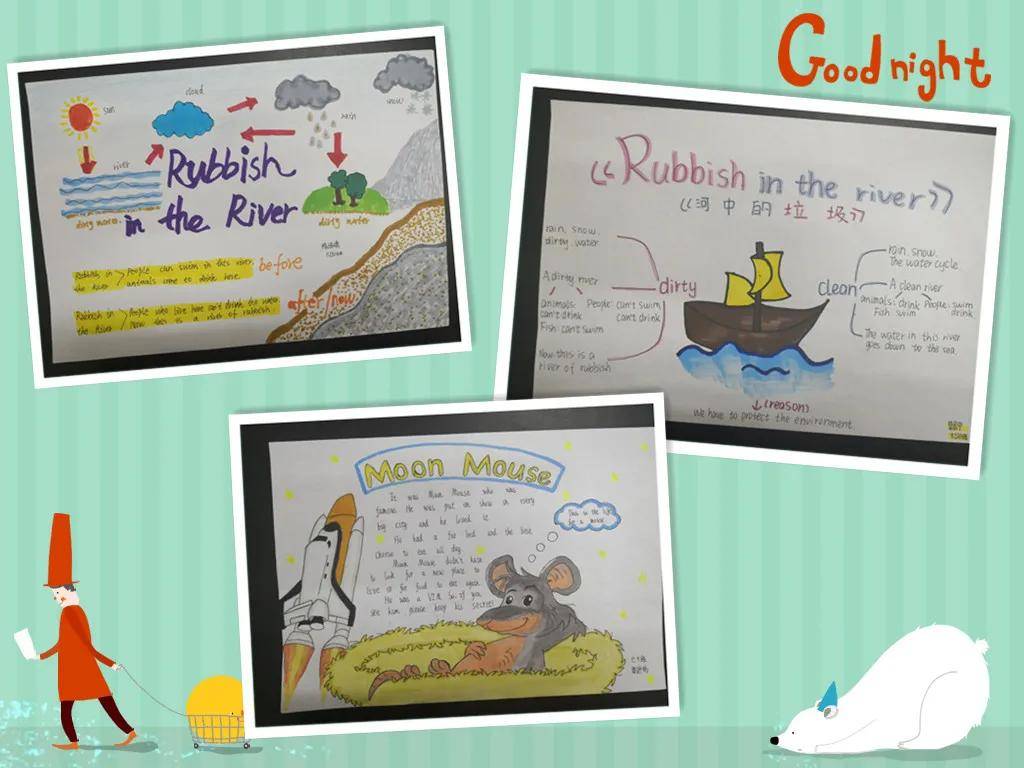 Good night
cloud
sun
rain
snow
river
Rubbish
in the River
dirty water
dirty water
Rubbish in > People can swim in this river.
the River animals come to drink here.
before
Rubbish in > People who live here can't drink the water
the River Now this is a river of rubbish.
after/now
《Rubbish in the river》
《河中的垃圾》
rain, snow,
dirty water
A dirty river
animals: People: can't swim
can't drink can't drink
Fish can't swim
Now this is a
river of rubbish
dirty
clean
rain, snow.
The water cycle
A clean river
animals: drink People: swim
Fish swim drink
The water in this river
goes down to the sea.
↓(reason)
We have to protect the environment.
Moon Mouse
It was Moon Mouse who was
famous. He was put on show in every
big city and he loved it
He had a fine bed and the best
Cheese to eat all day.
Moon Mouse didn't have
to look for a new place to
live or for food to eat again.
He was a V.I.M. So if you
see him, please keep his secret!
This is the life
for a mouse